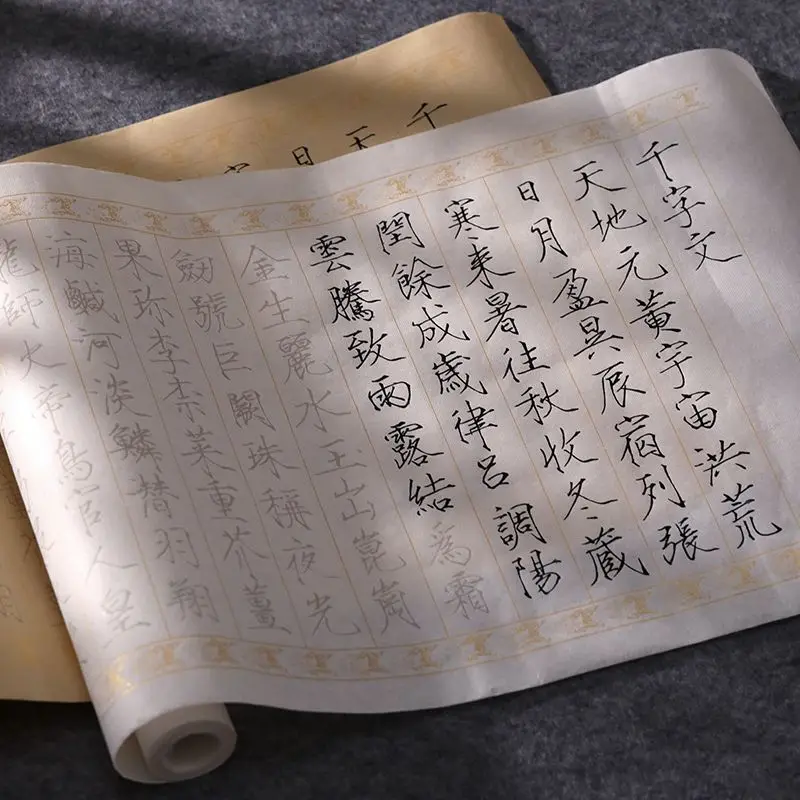 千字文
天地元黃宇宙洪荒
日月盈昃辰宿列張
寒来暑往秋收冬藏
閏餘成歲律呂調陽
雲騰致雨露結爲霜
金生麗水玉出崑崗
劒號巨闕珠稱夜光
果珍李柰菜重芥薑
海鹹河淡鱗潛羽翔
龍師火帝鳥官人皇
千
天
日